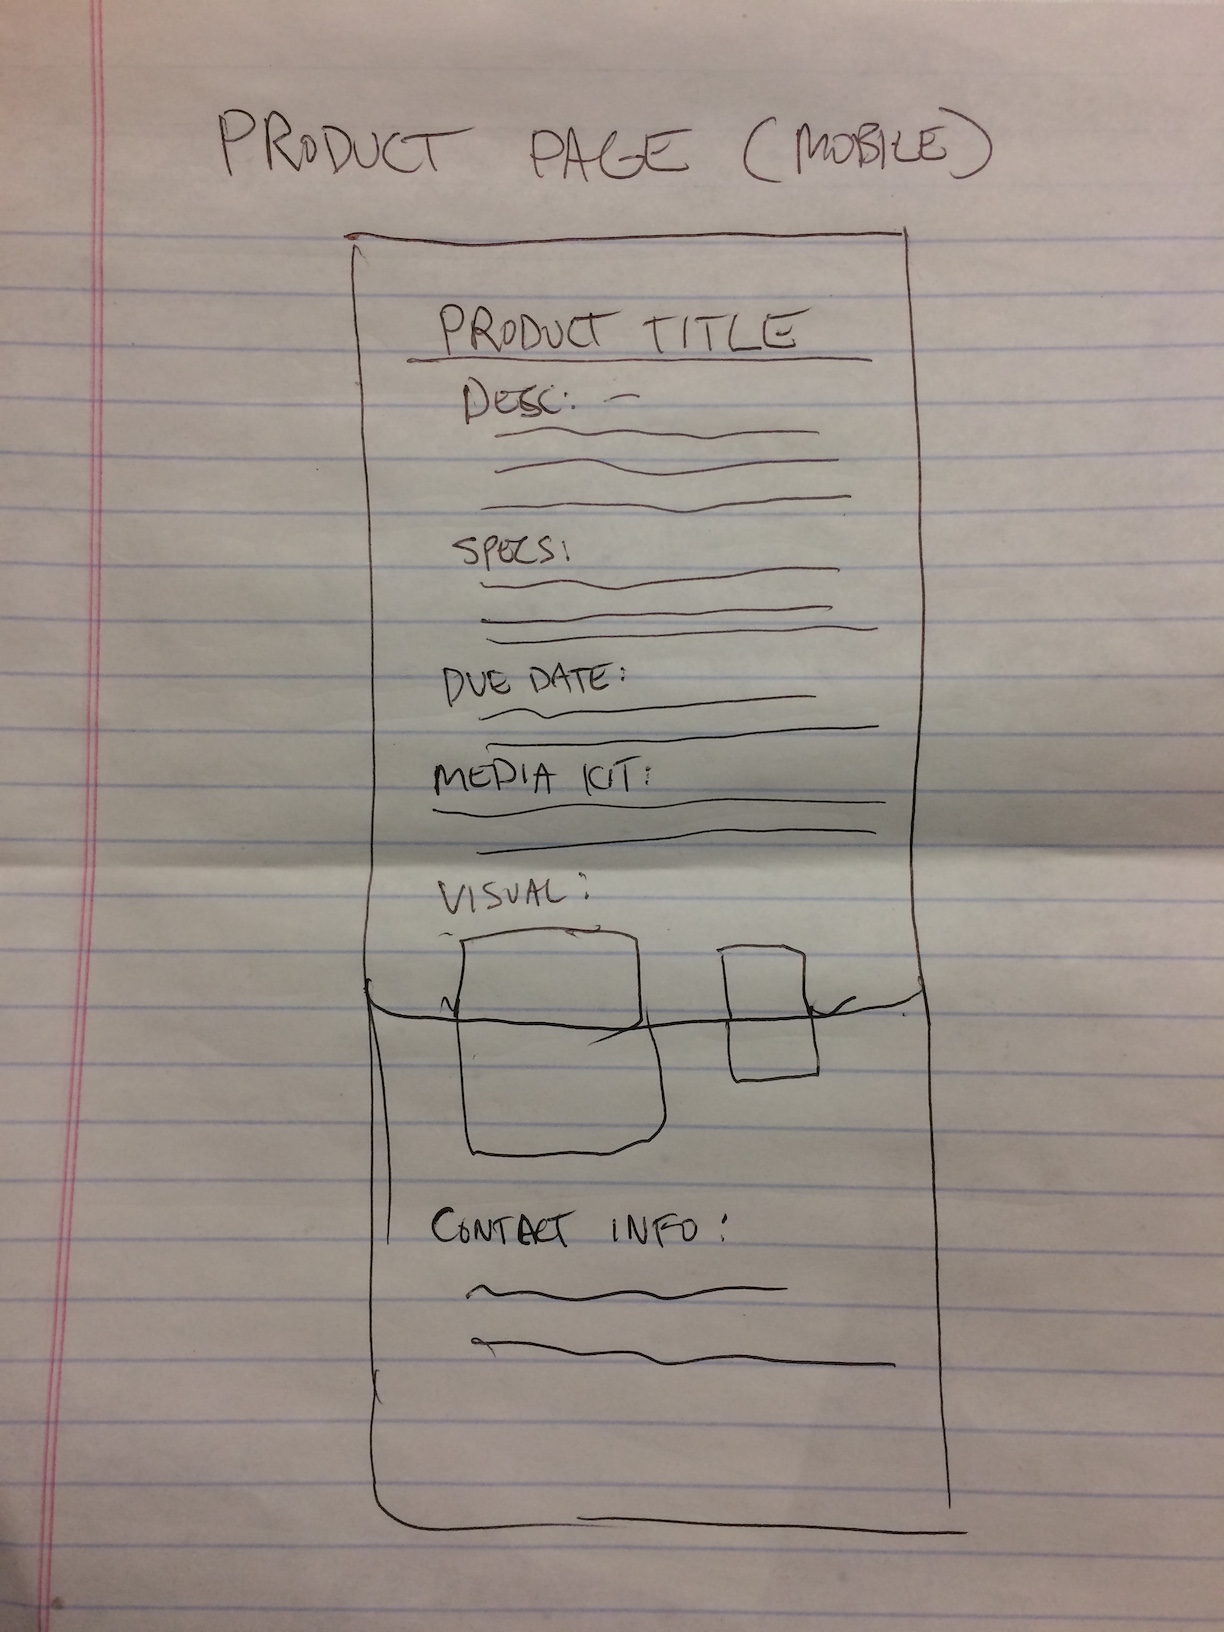 PRODUCT PAGE (MOBILE)
PRODUCT TITLE
DESC: —
SPECS:
DUE DATE:
MEDIA KIT:
VISUAL:
CONTACT INFO: